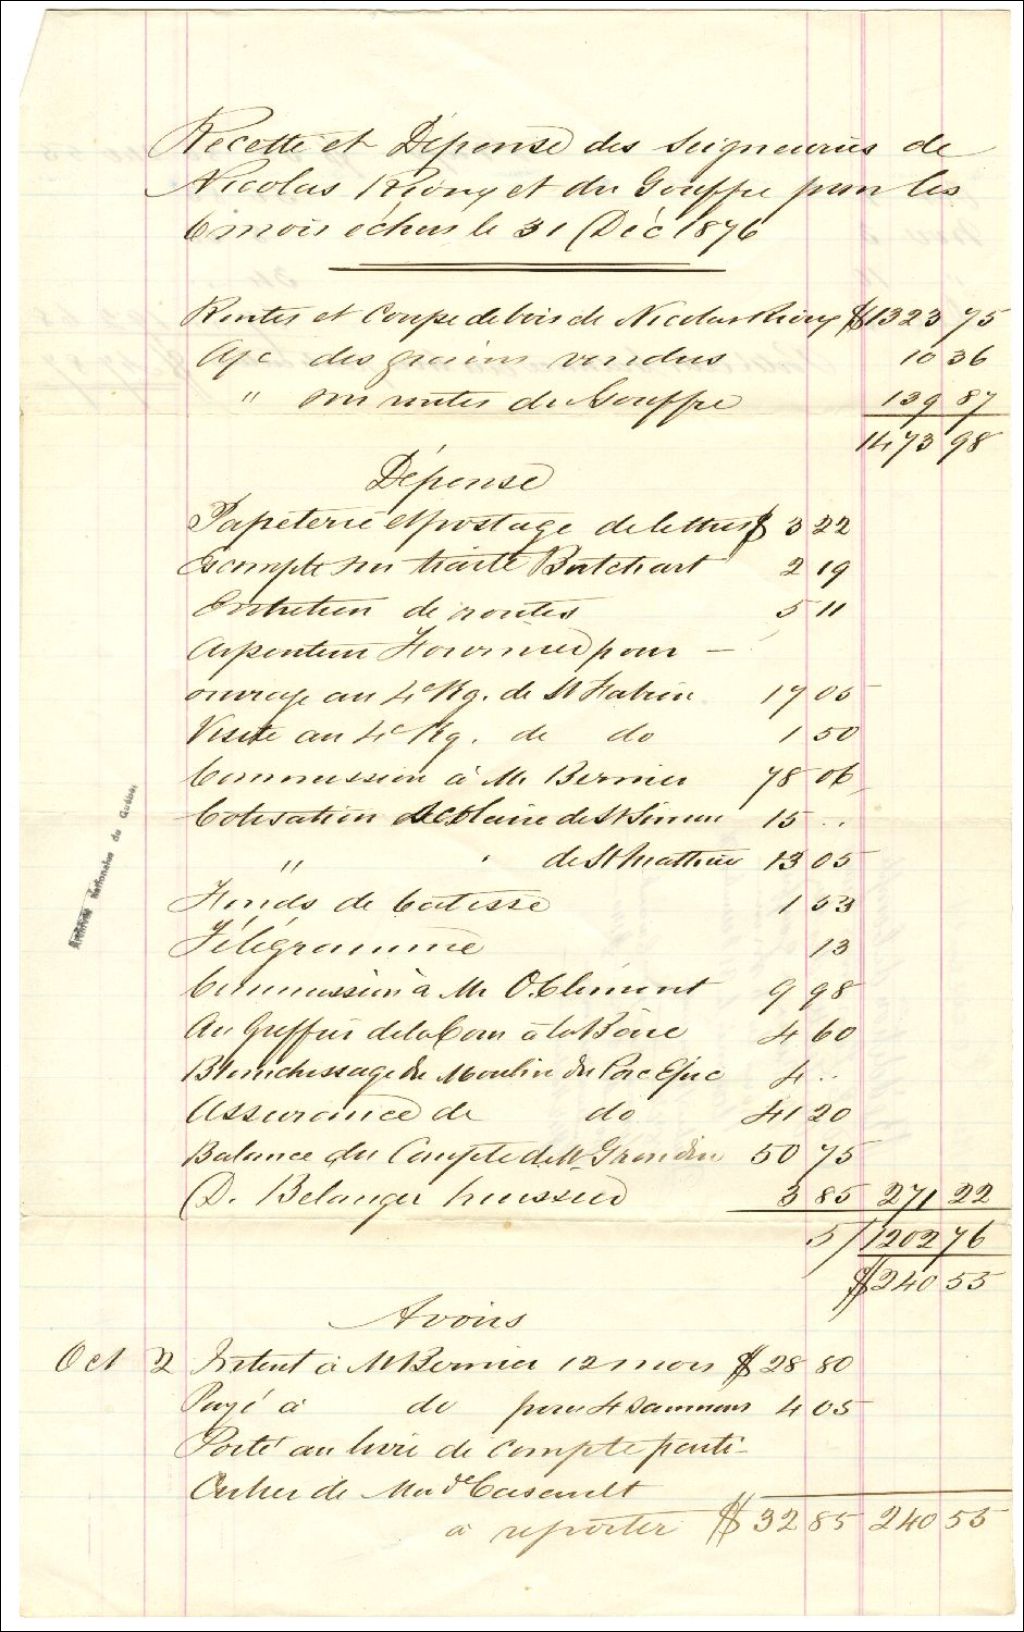 Recette et Dépense des Seigneuries de
Nicolas Rioux et du Gouffre pour les
6 mois échus le 31 Déc 1876
Rentes et Coupe de bois de Nicolas Rioux $1323 75
des grains vendus 10 36
" sur rentes du Gouffre 139 87
1473 98
Dépense
Papeterie et postage de lettres $ 3 22
Escompte sur traite Butchart 2 19
Entretien de routes 5 11
Arpenteur Fournier pour —
ouvrage au 4e Rg. de St Fabien 17 05
Visite au 4e Rg. de do 1 50
Commission à Mr Bernier 78 06
Cotisation Scolaire de St Simon 15 ..
" " de St Mathieu 13 05
Fonds de batisse 1 53
Télégramme 13
Commission à Mr O. Clément 9 98
Au Greffier de la Cour à la Baie 4 60
Blanchissage du Moulin du Porc Epic 4 ..
Assurance de do 41 20
Balance du Compte de Mr Grondin 50 75
D. Belanger huissier 3 85 271 22
5/1202 76
$240 55
Avoirs
Oct 2 Intent à Mr Bernier 12 mois $28 80
Payé à do pour 4 saumons 4 05
Porté au livre de compte parti-
culier de Mad de Casault
à reporter $32 85 240 55
Archives Nationales du Québec